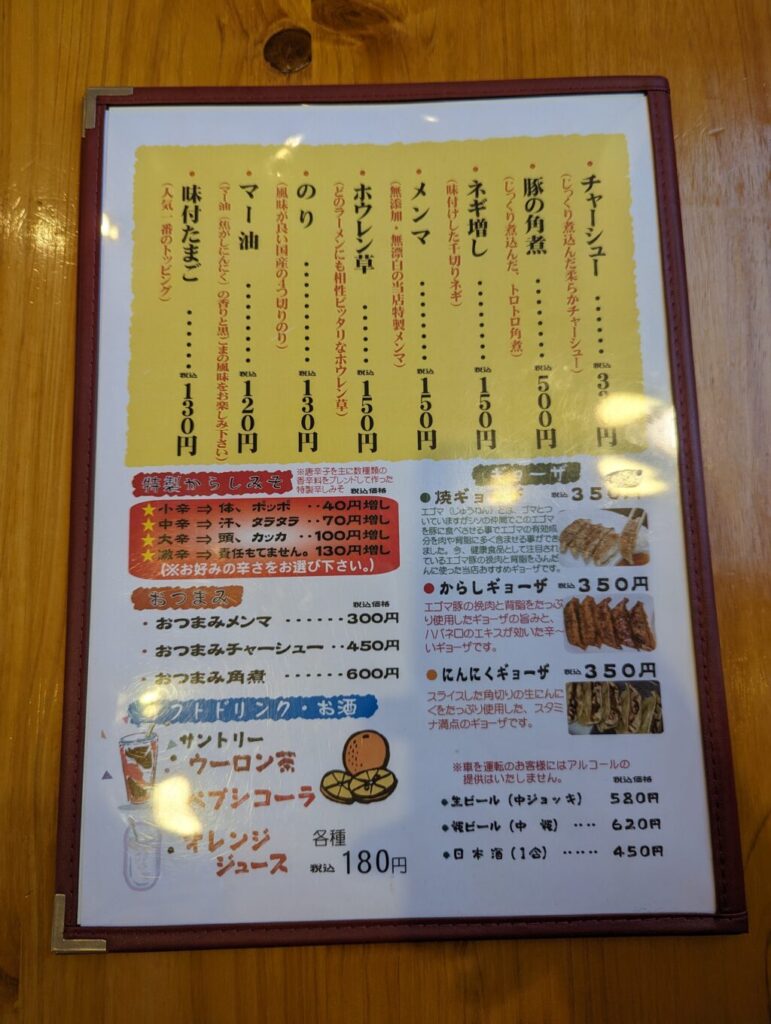 ・チャーシュー ‥‥‥ 税込3
(じっくり煮込んだ柔らかチャーシュー)
・豚の角煮 ‥‥‥‥ 税込500円
(じっくり煮込んだ、トロトロ角煮)
・ネギ増し ‥‥‥‥ 税込150円
(味付けした千切りネギ)
・メンマ ‥‥‥‥ 税込150円
(無添加・無漂白の当店特製メンマ)
・ホウレン草 ‥‥‥ 税込150円
(どのラーメンにも相性ピッタリなホウレン草)
・のり ‥‥‥‥‥ 税込130円
(風味が良い国産の4つ切りのり)
・マー油 ‥‥‥‥ 税込120円
(マー油(焦がしにんにく)の香りと黒ごまの風味をお楽しみ下さい)
・味付たまご ‥‥‥ 税込130円
(人気一番のトッピング)
特製からしみそ
※唐辛子を主に数種類の
香辛料をブレンドして作った
特製辛しみそ 税込価格
★小辛⇒体、ポッポ ‥40円増し
★中辛⇒汗、タラタラ ‥70円増し
★大辛⇒頭、カッカ ‥100円増し
★激辛⇒責任もてません。130円増し
(※お好みの辛さをお選び下さい。)
おつまみ 税込価格
・おつまみメンマ ‥‥‥300円
・おつまみチャーシュー ‥450円
・おつまみ角煮 ‥‥‥600円
フトドリンク・お酒
サントリー
・ウーロン茶
ペプシコーラ
・オレンジ
ジュース
各種
税込 180円
●焼ギョーザ 税込350円
エゴマ(じゅうねん)とは、ゴマとつ
いていますがシソの仲間でこのエゴマ
を豚に食べさせる事でエゴマの有効成
分を肉や背脂に多く含ませる事ができ
ました。今、健康食品として注目され
ているエゴマ豚の挽肉と背脂をふんだ
んに使った当店おすすめギョーザです。
●からしギョーザ 税込350円
エゴマ豚の挽肉と背脂をたっぷ
り使用したギョーザの旨みと、
ハバネロのエキスが効いた辛～
いギョーザです。
●にんにくギョーザ 税込350円
スライスした角切りの生にんに
くをたっぷり使用した、スタミ
ナ満点のギョーザです。
※車を運転のお客様にはアルコールの
提供はいたしません。 税込価格
・生ビール(中ジョッキ) 580円
・瓶ビール(中 瓶) ‥‥ 620円
・日本酒(1合) ‥‥‥ 450円